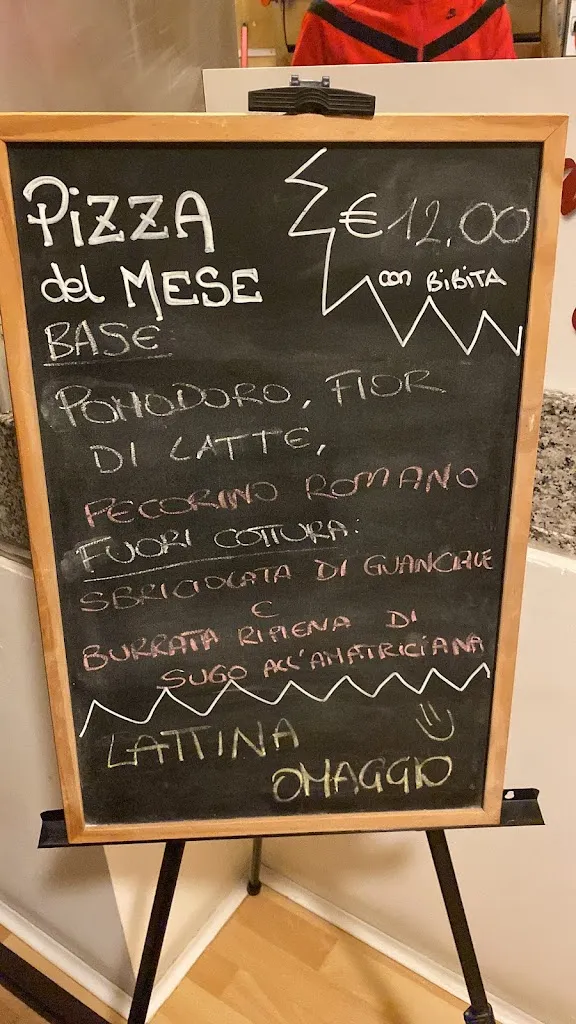 PiZZA
del MESE
€ 12,00
con BiBiTA
BASE
POMODORO, FIOR
DI LATTE,
PECORINO ROMANO
FUORI COTTURA:
SBRICIOLATA DI GUANCIALE
E
BURRATA RIPIENA DI
SUGO ALL'AMATRICIANA
LATTINA
OMAGGIO